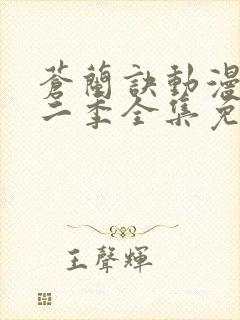 蒼蘭訣動漫
二季全集免
王聲輝